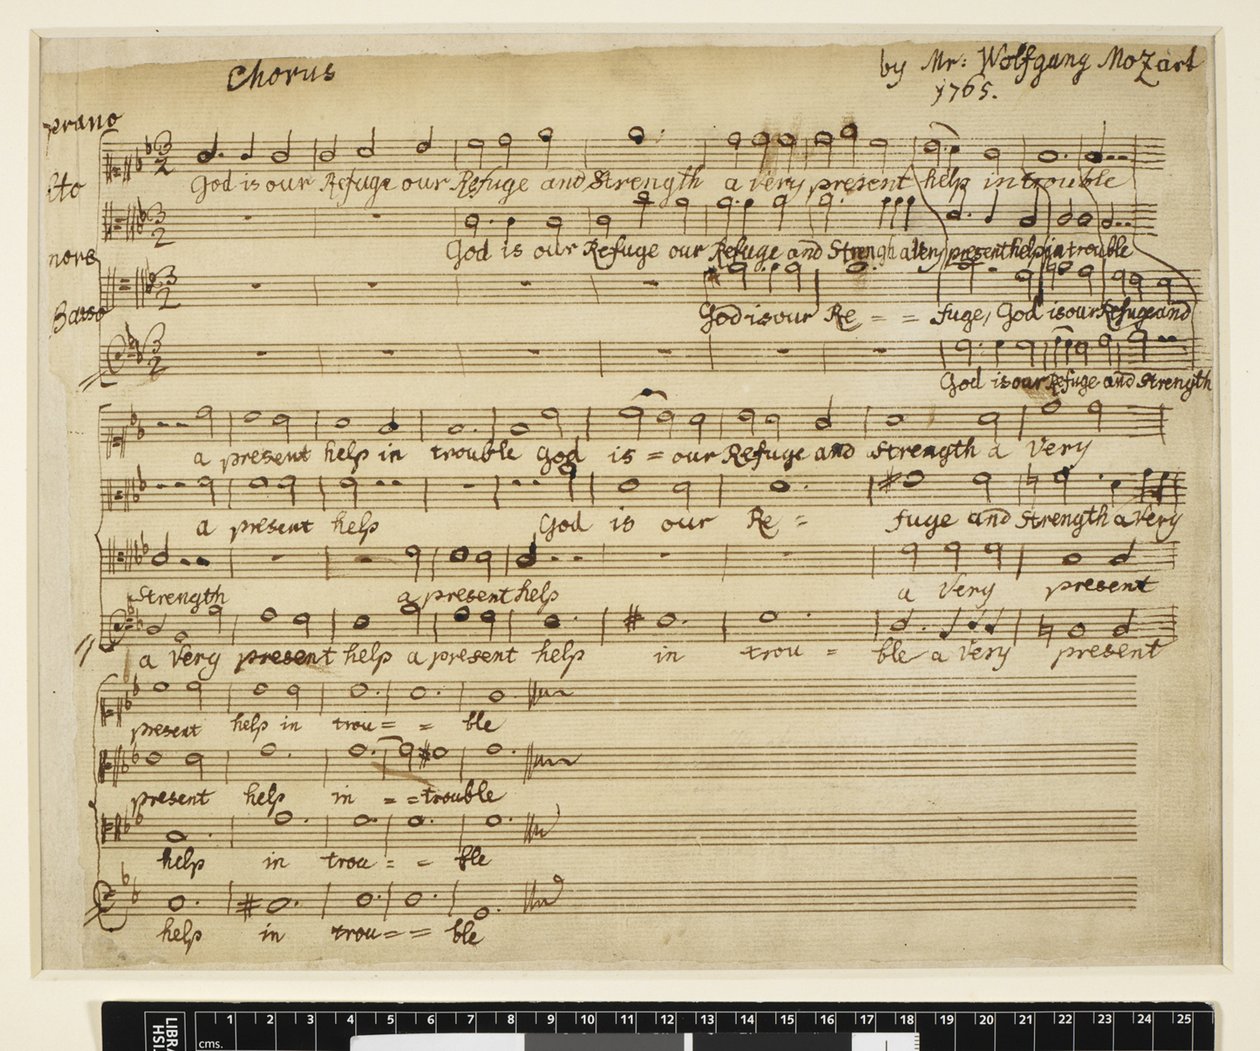 Chorus
by Mr: Wolfgang Mozart
1765.
prano
God is our Refuge our Refuge and Strength a very present help in trouble
lto
God is our Refuge our Refuge and Strength a Very present help in trouble
nore
God is our Re = = fuge, God is our Refuge and
Basso
God is our Refuge and Strength
a present help in trouble God is = our Refuge and Strength a Very
a present help God is our Re = fuge and Strength a Very
Strength a present help a Very present
a Very present help a present help in trou = ble a Very present
present help in trou = = ble
present help in = = trouble
help in trou = = ble
help in trou = = ble
cms. 1 2 3 4 5 6 7 8 9 10 11 12 13 14 15 16 17 18 19 20 21 22 23 24 25